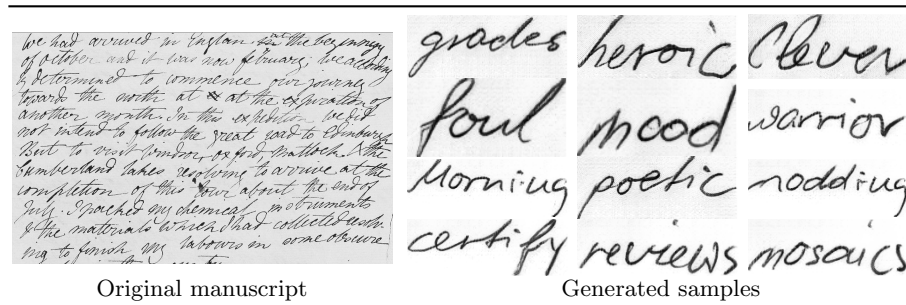 We had arrived in England at the beginning
of october and it was now february, we according
ly determined to commence our journey
towards the north at at the expiration of
another month. In this expedition we did
not intend to follow the great road to Edinburgh
But to visit Windsor, oxford, Matlock & the
Cumberland lakes resolving to arrive at the
completion of this tour about the end of
July. I packed my chemical instruments
& the materials which I had collected resolv
ing to finish my labours in some obscure
Original manuscript
grades heroic Clever
foul mood warrior
Morning poetic nodding
certify reviews mosaics
Generated samples